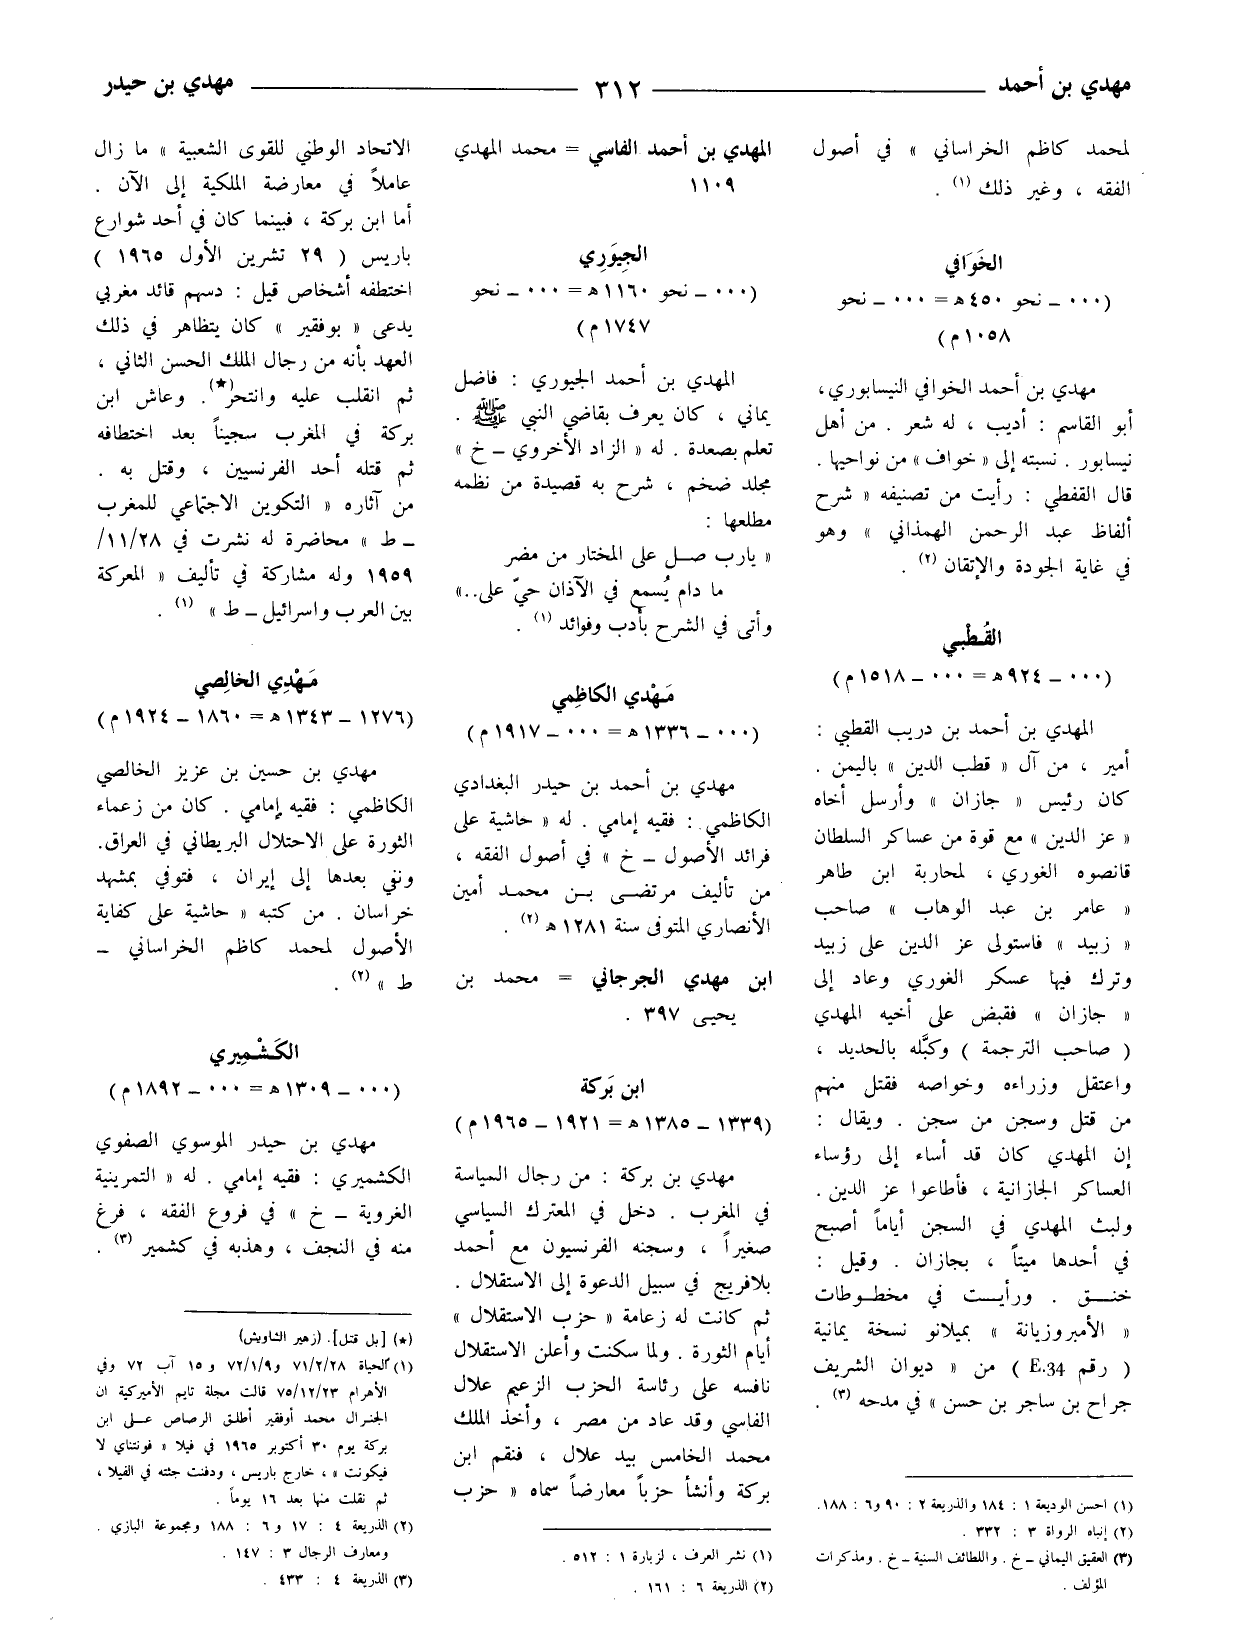 مهدي بن أحمد ٣١٢ مهدي بن حيدر
لمحمد كاظم الخراساني » في أصول
الفقه ، وغير ذلك (١) .
الخَوَافي
(٠٠٠ ـ نحو ٤٥٠ هـ = ٠٠٠ ـ نحو
١٠٥٨ م)
مهدي بن أحمد الخوافي النيسابوري،
أبو القاسم : أديب ، له شعر . من أهل
نيسابور . نسبته إلى « خواف » من نواحيها .
قال القفطي : رأيت من تصنيفه « شرح
ألفاظ عبد الرحمن الهمذاني » وهو
في غاية الجودة والإتقان (٢) .
القُطْبي
(٠٠٠ ـ ٩٢٤ هـ = ٠٠٠ ـ ١٥١٨ م)
المهدي بن أحمد بن دريب القطبي :
أمير ، من آل « قطب الدين » باليمن .
كان رئيس « جازان » وأرسل أخاه
« عز الدين » مع قوة من عساكر السلطان
قانصوه الغوري ، لمحاربة ابن طاهر
« عامر بن عبد الوهاب » صاحب
« زبيد » فاستولى عز الدين على زبيد
وترك فيها عسكر الغوري وعاد إلى
« جازان » فقبض على أخيه المهدي
( صاحب الترجمة ) وكبَّله بالحديد ،
واعتقل وزراءه وخواصه فقتل منهم
من قتل وسجن من سجن . ويقال :
إن المهدي كان قد أساء إلى رؤساء
العساكر الجازانية ، فأطاعوا عز الدين .
ولبث المهدي في السجن أياماً أصبح
في أحدها ميتاً ، بجازان . وقيل :
خنق . ورأيت في مخطوطات
« الأمبروزيانة » بميلانو نسخة يمانية
( رقم E.34 ) من « ديوان الشريف
جراح بن ساجر بن حسن » في مدحه (٣) .
(١) احسن الوديعة ١ : ١٨٤ والذريعة ٢ : ٩٠ و٦ : ١٨٨.
(٢) إنباه الرواة ٣ : ٣٣٢ .
(٣) العقيق اليماني ـ خ . واللطائف السنية ـ خ . ومذكرات
المؤلف .
المهدي بن أحمد الفاسي = محمد المهدي
١١٠٩
الجِيوَري
(٠٠٠ ـ نحو ١١٦٠ هـ = ٠٠٠ ـ نحو
١٧٤٧ م)
المهدي بن أحمد الجيوري : فاضل
يماني ، كان يعرف بقاضي النبي ﷺ .
تعلم بصعدة . له « الزاد الأخروي ـ خ »
مجلد ضخم ، شرح به قصيدة من نظمه
مطلعها :
« يارب صل على المختار من مضر
ما دام يُسمع في الآذان حيّ على..»
وأتى في الشرح بأدب وفوائد (١) .
مَهْدي الكاظِمي
(٠٠٠ ـ ١٣٣٦ هـ = ٠٠٠ ـ ١٩١٧ م)
مهدي بن أحمد بن حيدر البغدادي
الكاظمي : فقيه إمامي . له « حاشية على
فرائد الأصول ـ خ » في أصول الفقه ،
من تأليف مرتضى بن محمد أمين
الأنصاري المتوفى سنة ١٢٨١ هـ (٢) .
ابن مهدي الجرجاني = محمد بن
يحيى ٣٩٧ .
ابن بَركة
(١٣٣٩ ـ ١٣٨٥ هـ = ١٩٢١ ـ ١٩٦٥ م)
مهدي بن بركة : من رجال السياسة
في المغرب . دخل في المعترك السياسي
صغيراً ، وسجنه الفرنسيون مع أحمد
بلافريج في سبيل الدعوة إلى الاستقلال .
ثم كانت له زعامة « حزب الاستقلال »
أيام الثورة . ولما سكنت وأعلن الاستقلال
نافسه على رئاسة الحزب الزعيم علال
الفاسي وقد عاد من مصر ، وأخذ الملك
محمد الخامس بيد علال ، فنقم ابن
بركة وأنشأ حزباً معارضاً سماه « حزب
(١) نشر العرف ، لزبارة ١ : ٥١٢ .
(٢) الذريعة ٦ : ١٦١ .
الاتحاد الوطني للقوى الشعبية » ما زال
عاملاً في معارضة الملكية إلى الآن .
أما ابن بركة ، فبينما كان في أحد شوارع
باريس ( ٢٩ تشرين الأول ١٩٦٥ )
اختطفه أشخاص قيل : دسهم قائد مغربي
يدعى « بوفقير » كان يتظاهر في ذلك
العهد بأنه من رجال الملك الحسن الثاني ،
ثم انقلب عليه وانتحر(★). وعاش ابن
بركة في المغرب سجيناً بعد اختطافه
ثم قتله أحد الفرنسيين ، وقتل به .
من آثاره « التكوين الاجتماعي للمغرب
ـ ط » محاضرة له نشرت في ١١/٢٨/
١٩٥٩ وله مشاركة في تأليف « المعركة
بين العرب واسرائيل ـ ط » (١) .
مَهْدِي الخالِصي
(١٢٧٦ ـ ١٣٤٣ هـ = ١٨٦٠ ـ ١٩٢٤ م)
مهدي بن حسين بن عزيز الخالصي
الكاظمي : فقيه إمامي . كان من زعماء
الثورة على الاحتلال البريطاني في العراق.
ونفي بعدها إلى إيران ، فتوفي بمشهد
خراسان . من كتبه « حاشية على كفاية
الأصول لمحمد كاظم الخراساني ـ
ط » (٢) .
الكَشْمِيري
(٠٠٠ ـ ١٣٠٩ هـ = ٠٠٠ ـ ١٨٩٢ م)
مهدي بن حيدر الموسوي الصفوي
الكشميري : فقيه إمامي . له « التمرينية
الغروية ـ خ » في فروع الفقه ، فرغ
منه في النجف ، وهذبه في كشمير (٣) .
(★) [بل قتل]. (زهير الشاويش)
(١) الحياة ٧١/٢/٢٨ و٧٢/١/٩ و ١٥ آب ٧٢ وفي
الأهرام ٧٥/١٢/٢٣ قالت مجلة تايم الأميركية ان
الجنرال محمد أوفقير أطلق الرصاص على ابن
بركة يوم ٣٠ أكتوبر ١٩٦٥ في فيلا « فونتناي لا
فيكونت » ، خارج باريس ، ودفنت جثته في الفيلا ،
ثم نقلت منها بعد ١٦ يوماً .
(٢) الذريعة ٤ : ١٧ و٦ : ١٨٨ ومجموعة البازي .
ومعارف الرجال ٣ : ١٤٧ .
(٣) الذريعة ٤ : ٤٣٣ .